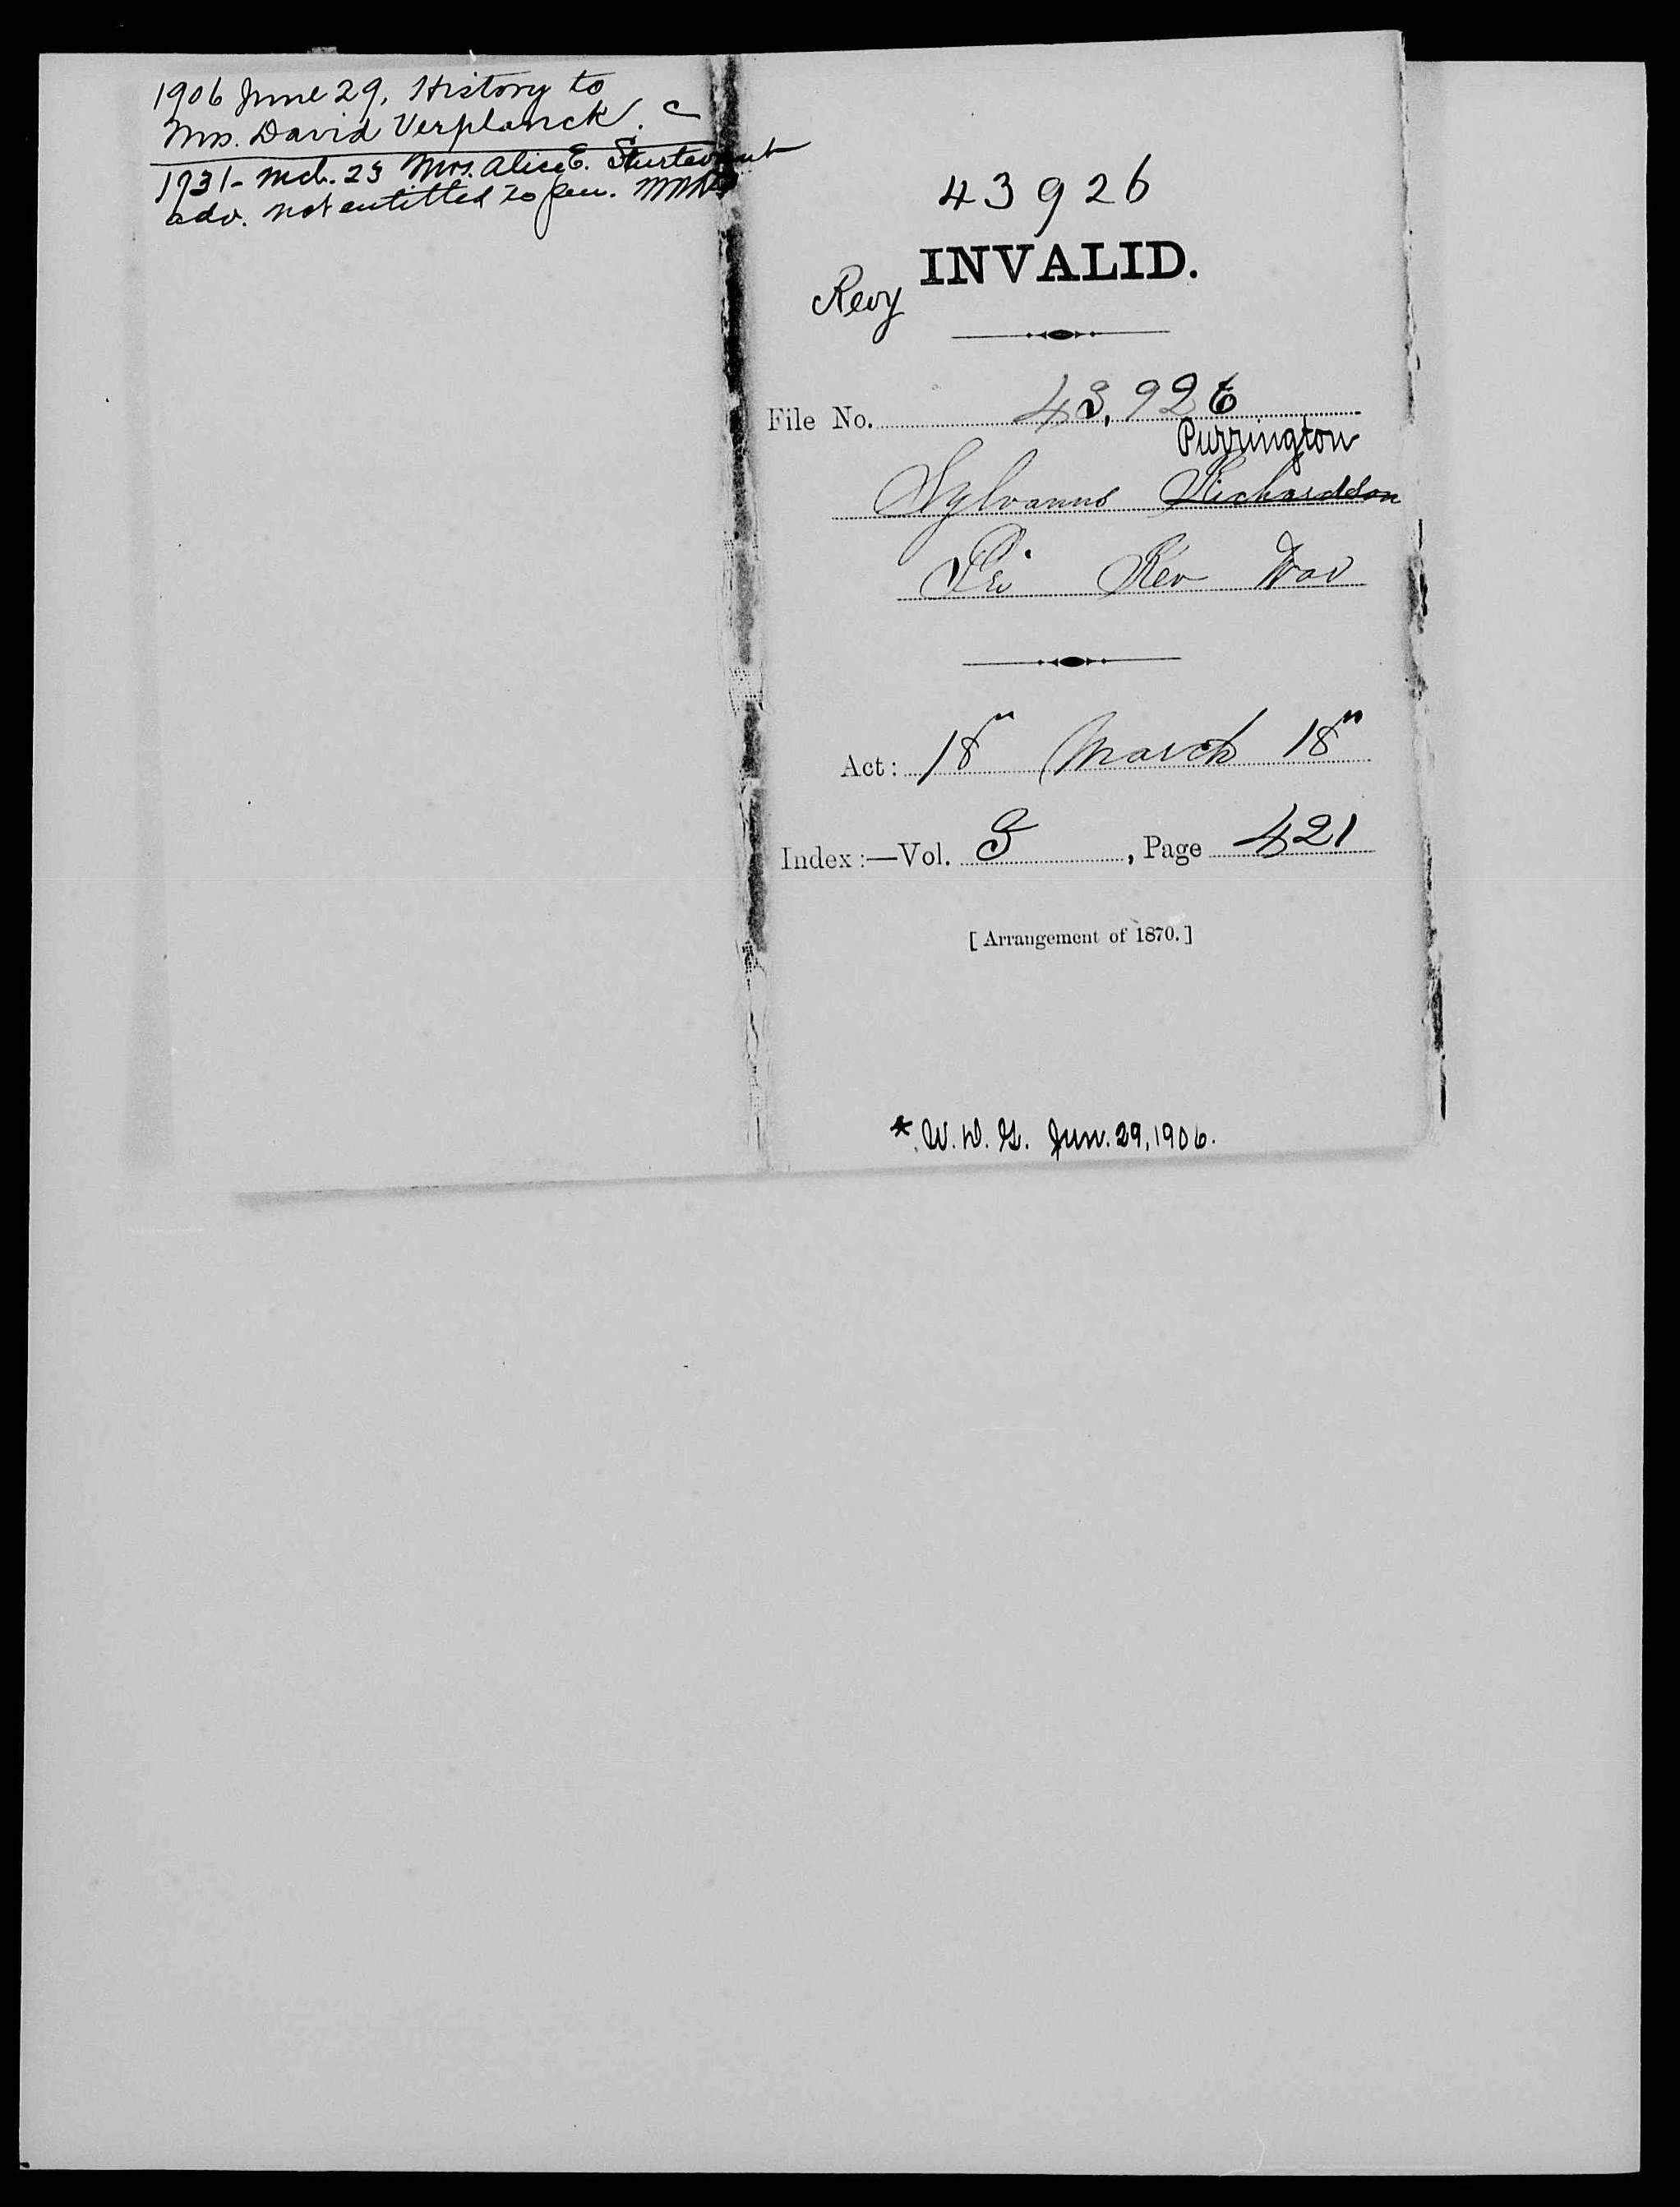 1906 June 29, History to
Mrs. David Verplanck. C
1931 - Mch. 23 Mrs. Alice E. Sturtevant
adv. not entitled to pen.
43926
INVALID.
Revy
File No. 43,926
Purrington
Sylvanus Richardson
Pri Rev War
Act: 18" March 18"
Index:—Vol. 3, Page 421
[Arrangement of 1870.]
* W. D. G. Jun. 29, 1906.